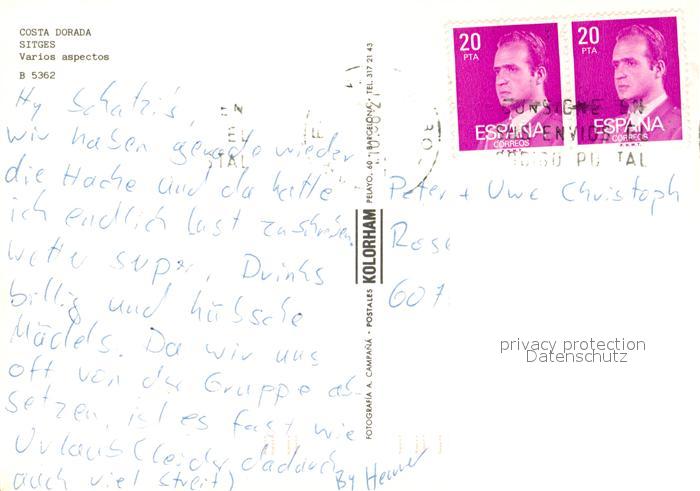 COSTA DORADA
SITGES
Varios aspectos
B 5362
Hy Schatzis
wir haben gerade wieder
die Hache und da hatte
ich endlich lust zuschreiben.
Wetter super, Drinks
billig und hübsche
Mädels. Da wir uns
oft von der Gruppe ab-
setzen, ist es fast wie
Urlaub (leider dadurch
auch viel Streit)
By Heiner
FOTOGRAFIA A. CAMPAÑÁ - POSTALES KOLORHAM PELAYO, 60 - BARCELONA - TEL. 317 21 43
20 PTA
ESPAÑA
CORREOS
20 PTA
ESPAÑA
CORREOS
Peter + Uwe Christoph
Rose
607
privacy protection
Datenschutz